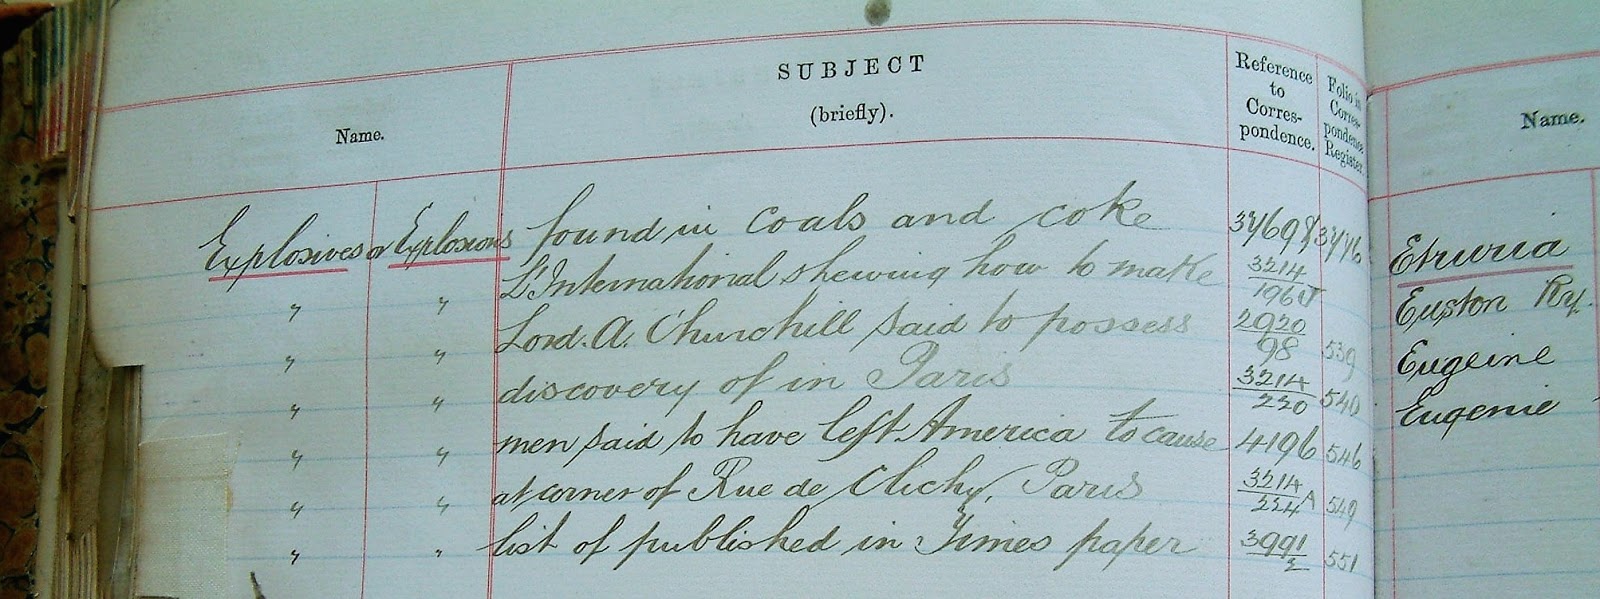 Name.
SUBJECT
(briefly).
Reference
to
Corres-
pondence.
Folio in
Corres-
pondence
Register.
Name.
Explosives or Explosions found in coals and coke
" " L'International shewing how to make 3214/196
" " Lord. A. Churchill said to possess 2920/98 539
" " discovery of in Paris 3214/220 540
" " men said to have left America to cause 4196 546
" " at corner of Rue de Clichy, Paris 3214/224A 549
" " list of published in Times paper 3991/2 551
Etruria
Euston Ry.
Eugeine
Eugenie